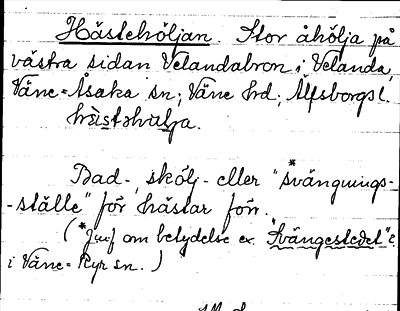 Hästehöljan. Stor åhölja på
västra sidan Velandabron i Velanda,
Väne-Åsaka sn; Väne hrd, Älfsborgs l.
Bad-, skölj- eller "*svängnings-
-ställe" för hästar förr.
(*Jmf om betydelse ex. "Svängestedet" i
i Väne-Ryr sn.)